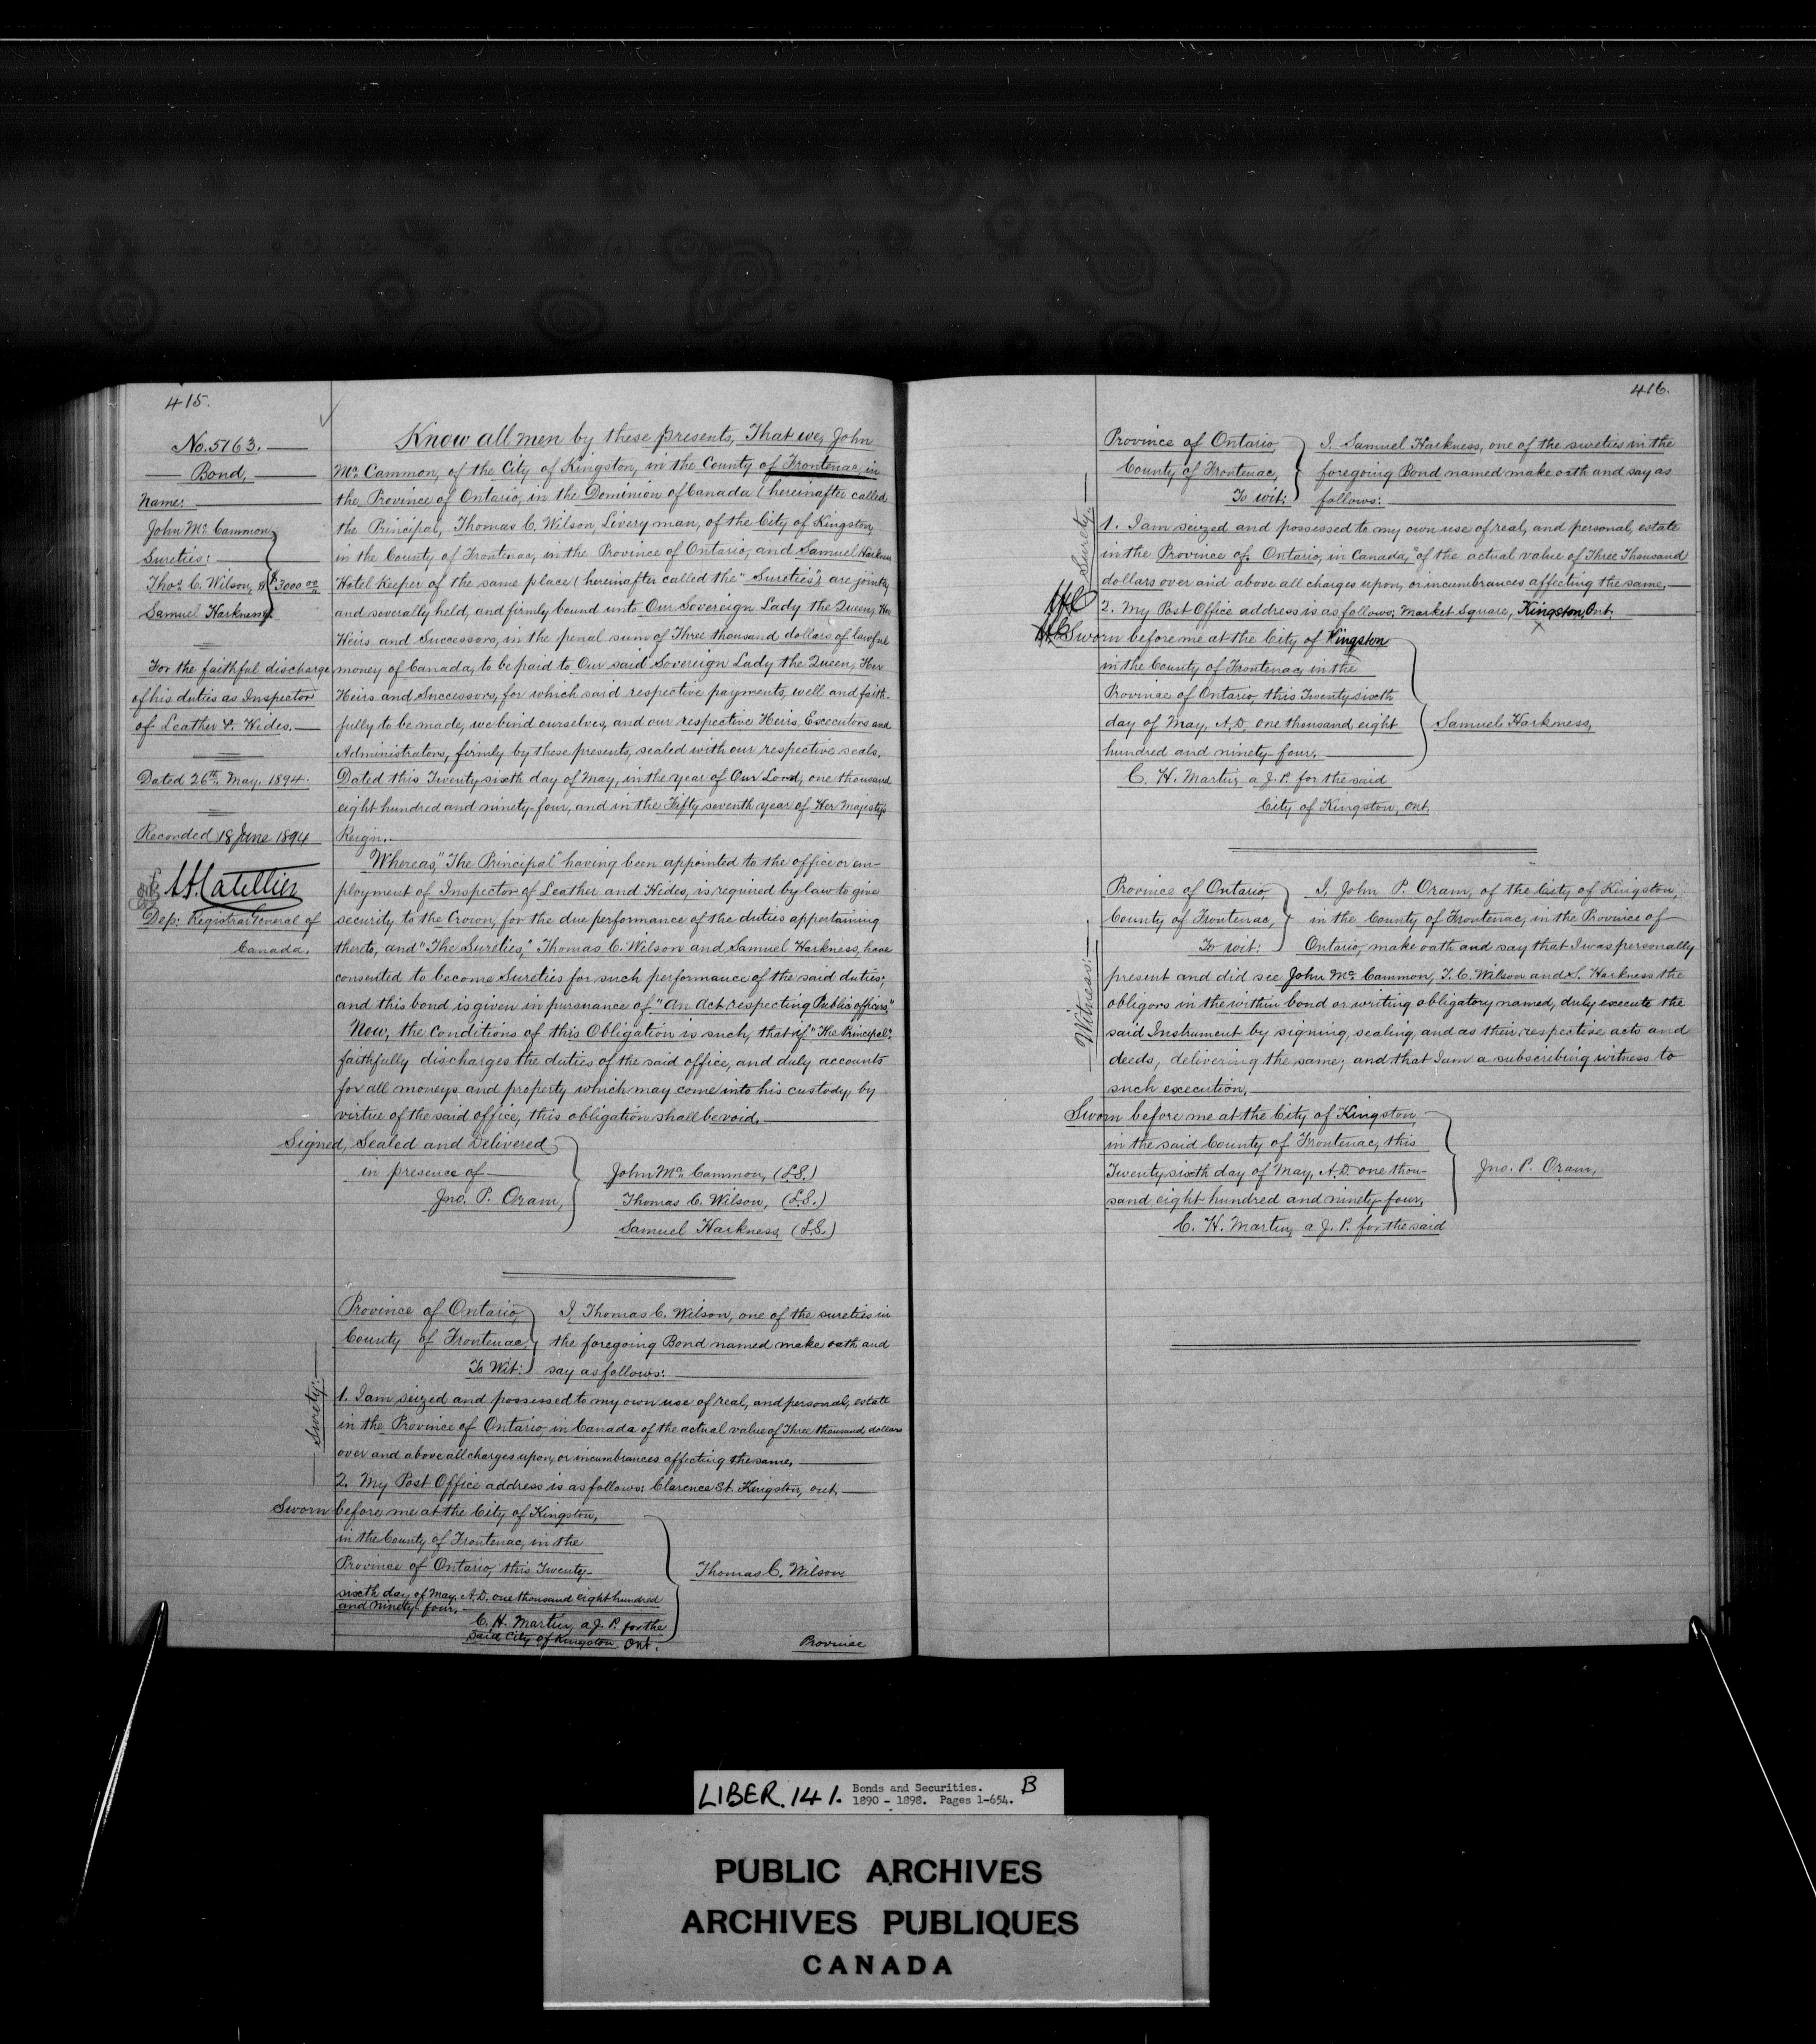 415.
No. 5163.
Bond,
Name:
John Mc Cammon,
Sureties:
Thos. C. Wilson, & $3000 00
Samuel Harkness.
For the faithful discharge
of his duties as Inspector
of Leather & Hides.
Dated 26th. May. 1894.
Recorded 18 June 1894
Dep: Registrar General of
Canada.
Know all men by these presents, That we, John
Mc Cammon, of the City of Kingston, in the County of Frontenac, in
the Province of Ontario, in the Dominion of Canada (hereinafter called
the Principal, Thomas C. Wilson, Livery man, of the City of Kingston,
in the County of Frontenac, in the Province of Ontario, and Samuel Harkness
Hotel Keeper of the same place (hereinafter called the "Sureties") are jointly
and severally held, and firmly bound unto Our Sovereign Lady the Queen, Her
Heirs and Successors, in the penal sum of Three thousand dollars of lawful
money of Canada, to be paid to Our said Sovereign Lady the Queen, Her
Heirs and Successors, for which said respective payments, well and faith-
fully to be made, we bind ourselves, and our respective Heirs, Executors and
Administrators, firmly by these presents, sealed with our respective seals.
Dated this Twenty-sixth day of May, in the year of Our Lord, one thousand
eight hundred and ninety-four, and in the Fifty seventh year of Her Majesty's
Reign.
Whereas, "The Principal" having been appointed to the office or em-
ployment of Inspector of Leather and Hides, is required by law to give
security to the Crown, for the due performance of the duties appertaining
thereto, and "The Sureties," Thomas C. Wilson and Samuel Harkness, have
consented to become Sureties for such performance of the said duties;
and this bond is given in pursuance of "An Act respecting Public officers,"
Now, the Conditions of this Obligation is such, that if "The Principal"
faithfully discharges the duties of the said office, and duly accounts
for all moneys and property which may come into his custody by
virtue of the said office, this obligation shall be void.
Signed, Sealed and Delivered
in presence of
Jno. P. Oram,
John Mc Cammon, (L.S.)
Thomas C. Wilson, (L.S.)
Samuel Harkness, (L.S.)
Province of Ontario,
County of Frontenac,
To Wit:
I, Thomas C. Wilson, one of the sureties in
the foregoing Bond named make oath and
say as follows:
Surety:
1. I am seized and possessed to my own use of real, and personal, estate
in the Province of Ontario, in Canada of the actual value of Three thousand dollars
over and above all charges upon, or incumbrances affecting the same.
2. My Post Office address is as follows: Clarence St. Kingston, Ont.
Sworn before me at the City of Kingston,
in the County of Frontenac, in the
Province of Ontario, this Twenty-
sixth day of May, A.D. one thousand eight hundred
and ninety four.
C. H. Martin, a J. P. for the
said City of Kingston. Ont.
Thomas C. Wilson.
Province
416.
Province of Ontario,
County of Frontenac,
To wit:
I, Samuel Harkness, one of the sureties in the
foregoing Bond named make oath and say as
follows:
Surety:
1. I am seized and possessed to my own use of real, and personal, estate
in the Province of Ontario, in Canada, of the actual value of Three Thousand
dollars over and above all charges upon, or incumbrances affecting the same.
2. My Post Office address is as follows; Market Square, Kingston, Ont.
Sworn before me at the City of Kingston
in the County of Frontenac, in the
Province of Ontario, this Twenty sixth
day of May, A.D. one thousand eight
hundred and ninety-four.
C. H. Martin, a J. P. for the said
City of Kingston, Ont.
Samuel Harkness,
Province of Ontario,
County of Frontenac,
To wit:
I, John P. Oram, of the City of Kingston,
in the County of Frontenac, in the Province of
Ontario, make oath and say that I was personally
Witness:
present and did see John Mc Cammon, T. C. Wilson and S. Harkness the
obligors in the within bond or writing obligatory named, duly execute the
said Instrument by signing, sealing, and as their respective acts and
deeds, delivering the same; and that I am a subscribing witness to
such execution.
Sworn before me at the City of Kingston,
in the said County of Frontenac, this
Twenty sixth day of May, A.D. one thou-
sand eight hundred and ninety-four,
C. H. Martin, a J. P. for the said
Jno. P. Oram,
LIBER. 141. Bonds and Securities. B
1890 - 1898. Pages 1-654.
PUBLIC ARCHIVES
ARCHIVES PUBLIQUES
CANADA